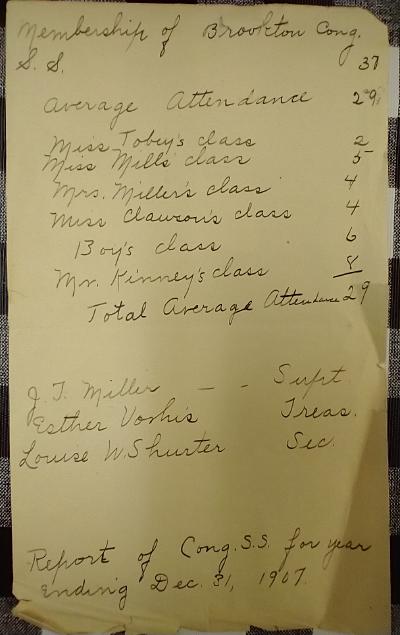 Membership of Brookton Cong.
S. S. 37
Average Attendance 29
Miss Tobey's class 2
Miss Mills class 5
Mrs. Miller's class 4
Miss Clawson's class 4
Boy's class 6
Mr. Kinney's class 8
Total Average Attendance 29
J. T. Miller — - Supt.
Esther Voshis Treas.
Louise W. Shurter Sec.
Report of Cong. S.S. for year
ending Dec. 31, 1907.